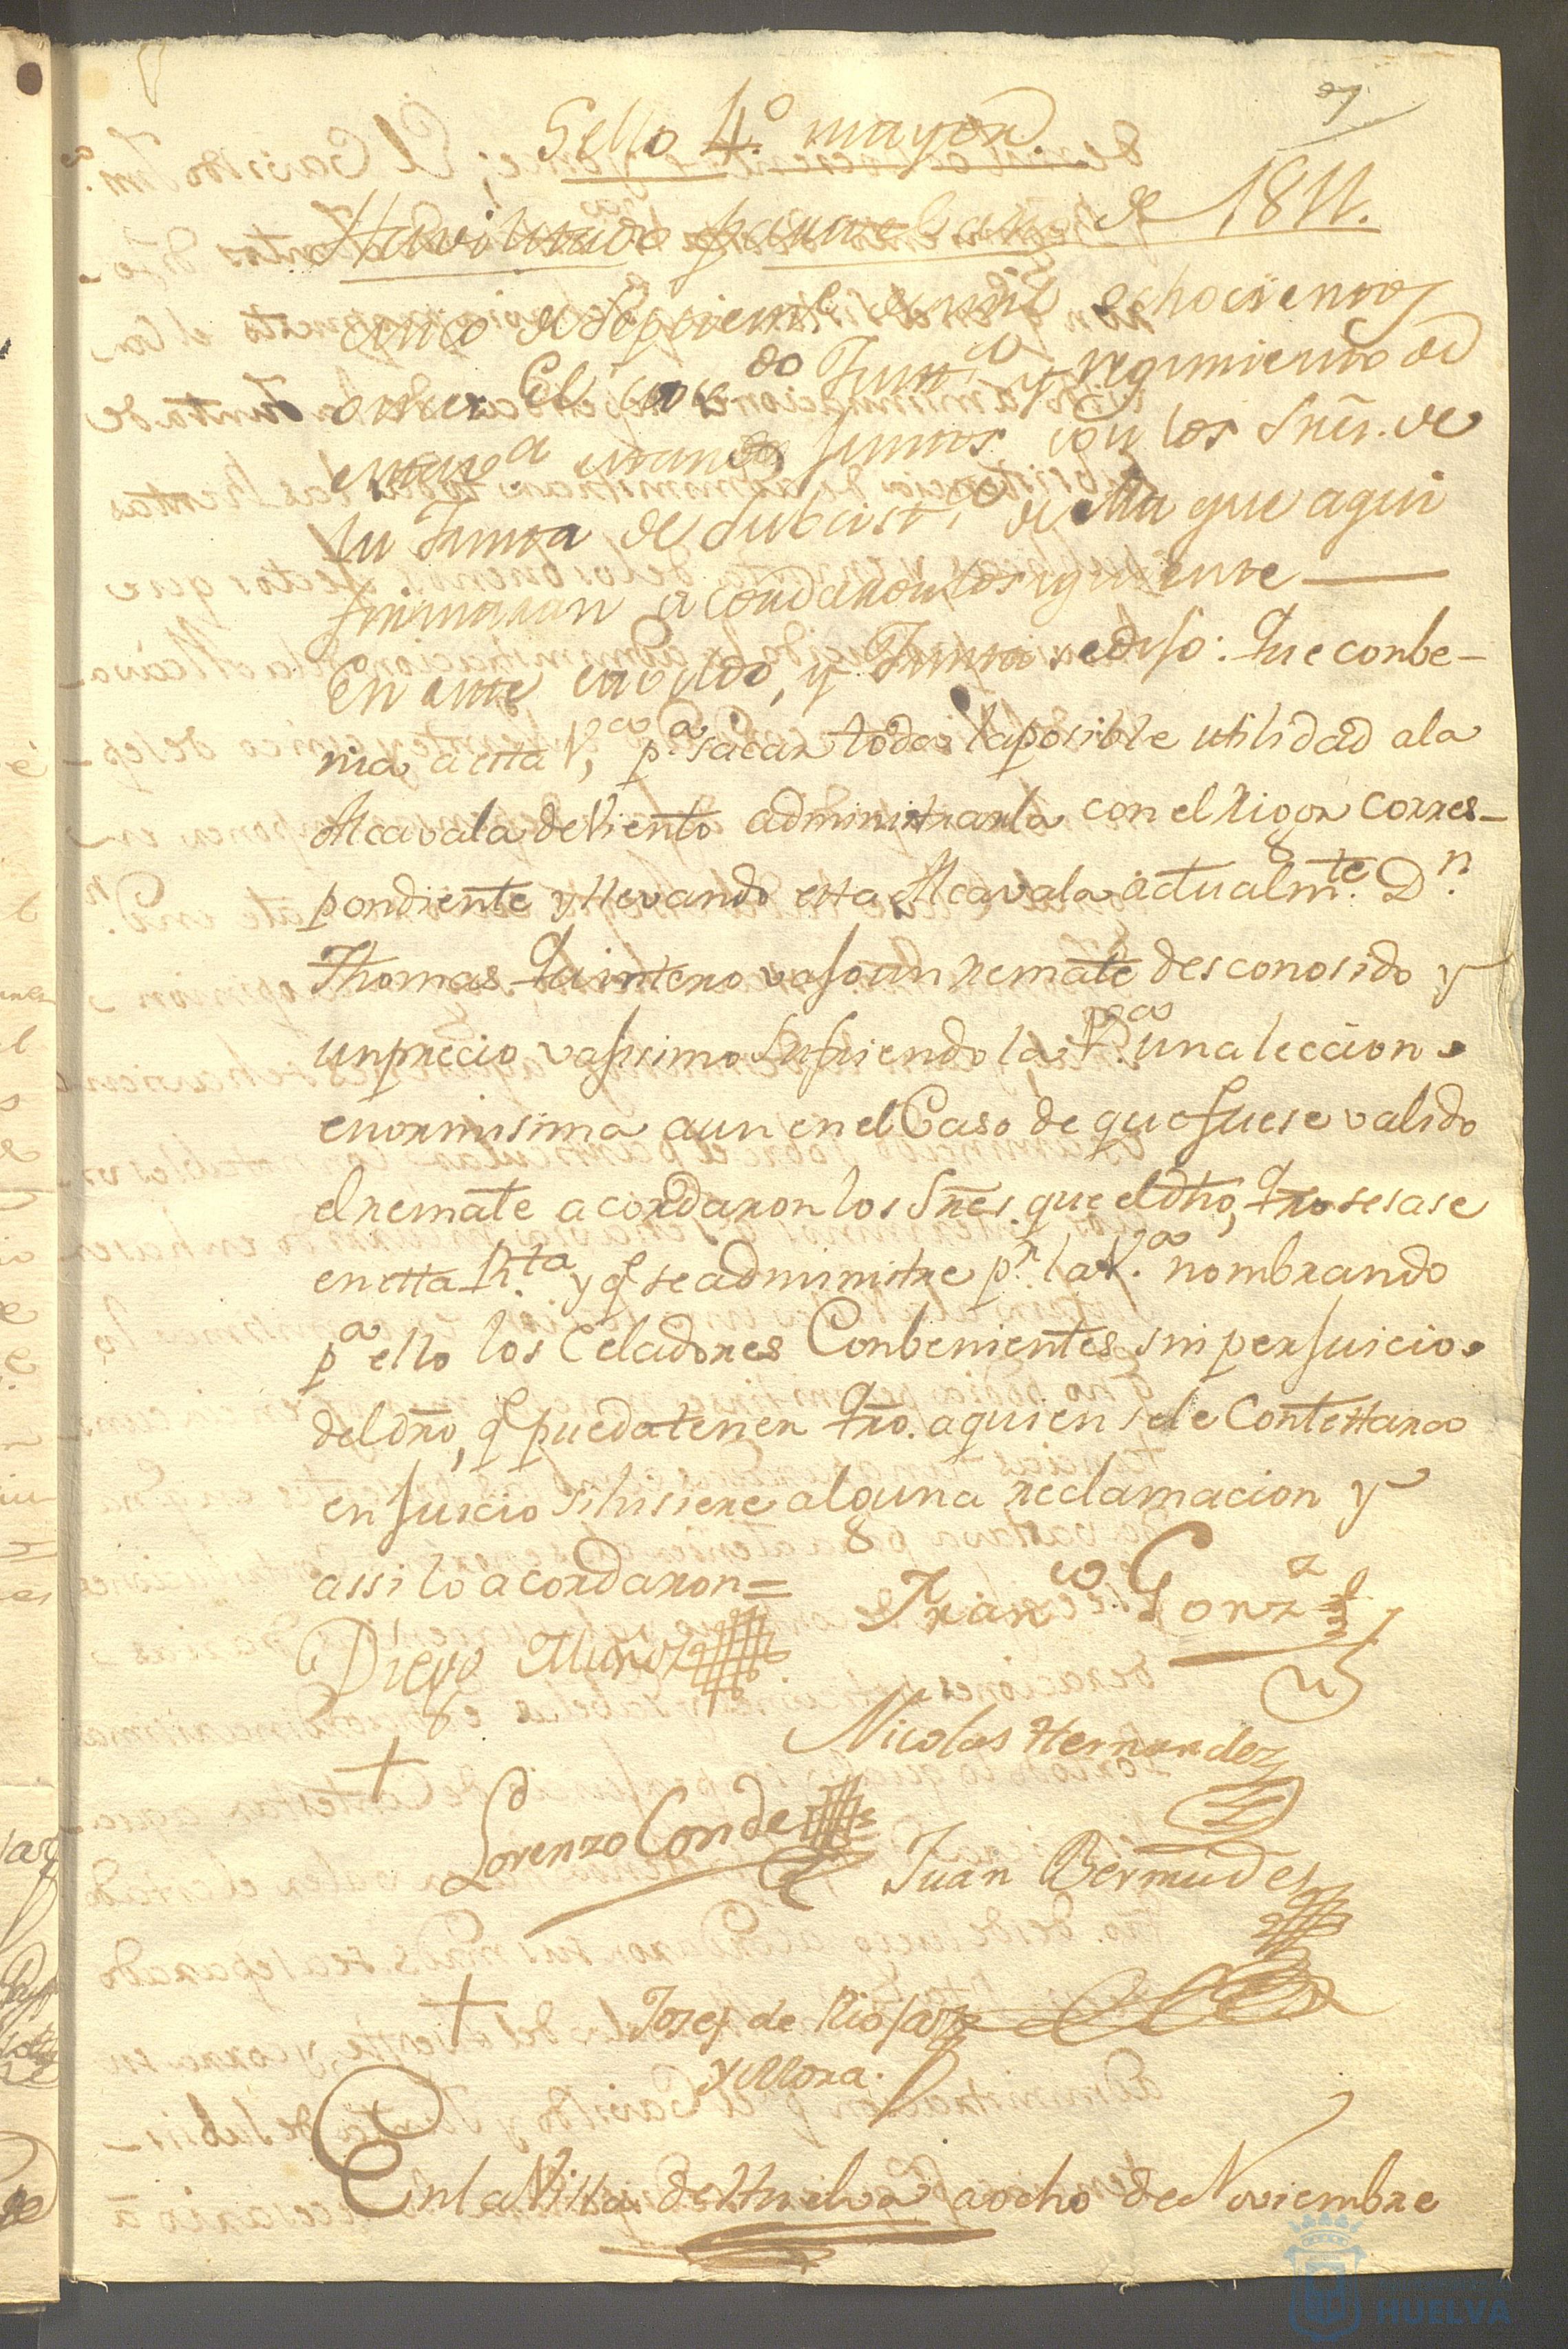 Sello 4.º mayor.
Havilitado para el año de 1811.
cinco de Septiemb.e de mil ochocientos
once El cav.do Just.ª y regimiento de
esta V.ª estando juntos con los Sres. de
su Junta de Subsist.ª de ella que aqui
firmaran acordaron lo siguiente
En este cavildo, y Junta se dijo: Que conbe-
nia a esta V.ª, p.ª sacar toda la posible utilidad a la
Alcavala de Viento administrarla con el Rigor corres-
pondiente y llevando esta Alcavala actualm.te D.n
Thomas Quintero vajo un remate desconosido y
un precio vajisimo sufriendo la V.ª una lecion
enormisima aun en el Caso de que fuese valido
el remate acordaron los Sres. que el dho, Qro sesase
en esta R.ta y q.e se administre p.r la V.ª nombrando
p.ª ello los Celadores Conbenientes sin perjuicio
del dro, q.e pueda tener Qro. a quien se le Contestara
en juicio si hisiere alguna reclamacion y
assi lo acordaron=
Fran.co Gonz.z
Diego Muñoz
Nicolas Hernandez
Lorenzo Conde
Juan Bermudes
Josef de Rioja
y Mora.
En la Villa de Huelva a ocho de Noviembre
HUELVA